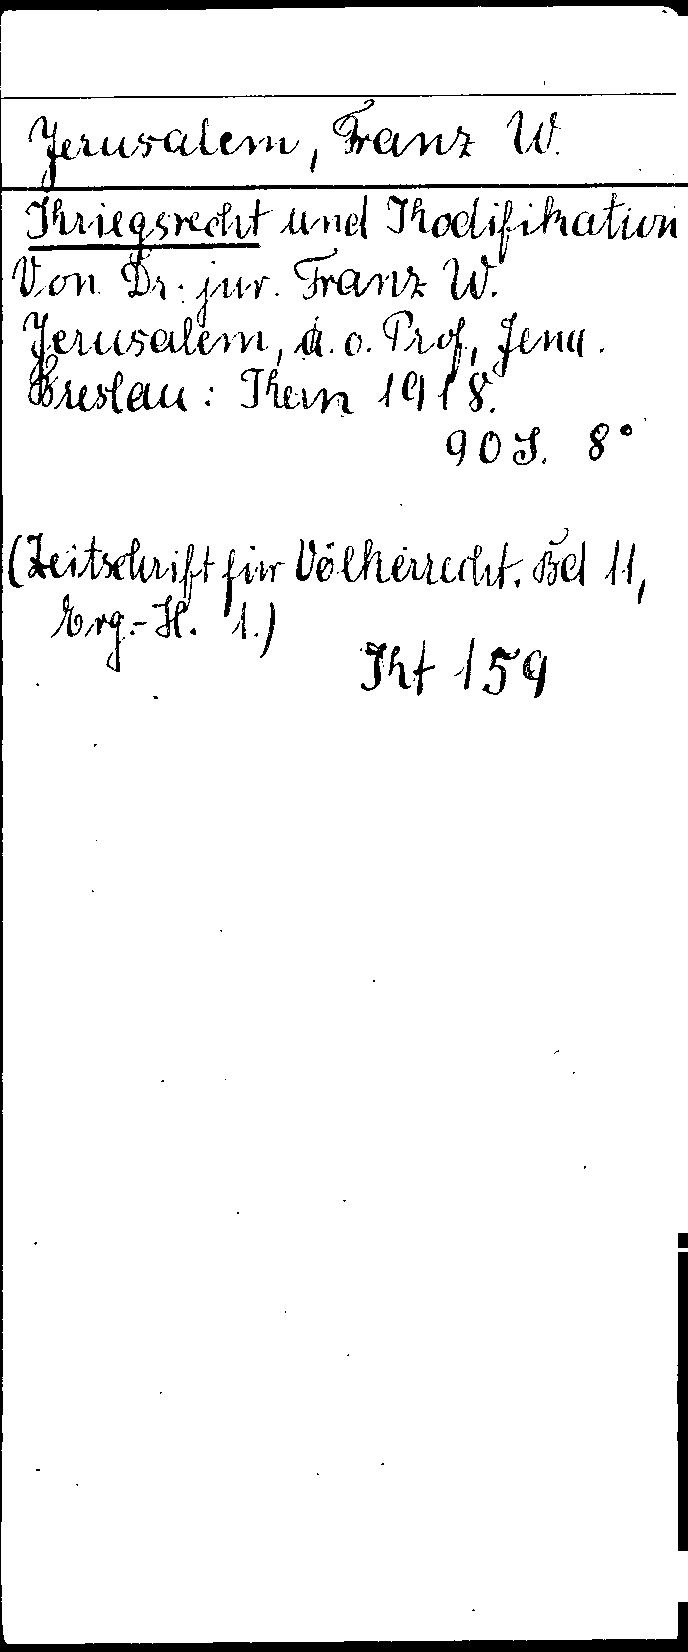 Jerusalem, Franz W.
Kriegsrecht und Kodifikation
Von Dr. jur. Franz W.
Jerusalem, a. o. Prof., Jena.
Breslau: Kern 1918.
90 S. 8°
(Zeitschrift für Völkerrecht. Bd 11,
Erg.-H. 1.)
Kt 159